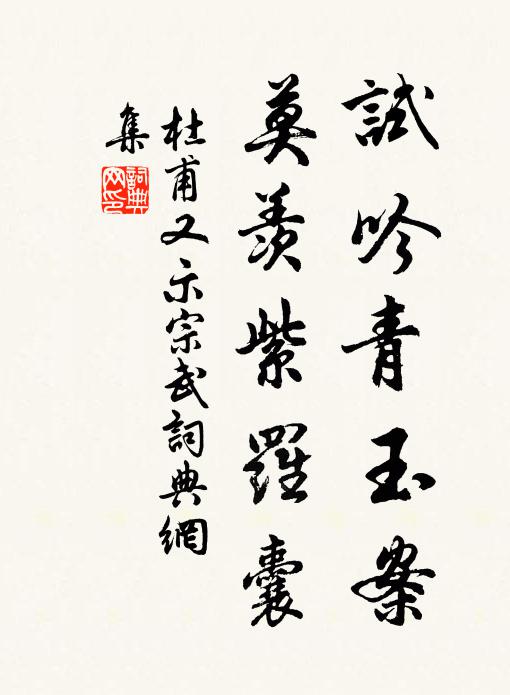 試吟青玉案
莫羨紫羅囊
杜甫又示宗武詞典網
集
詞典
网印